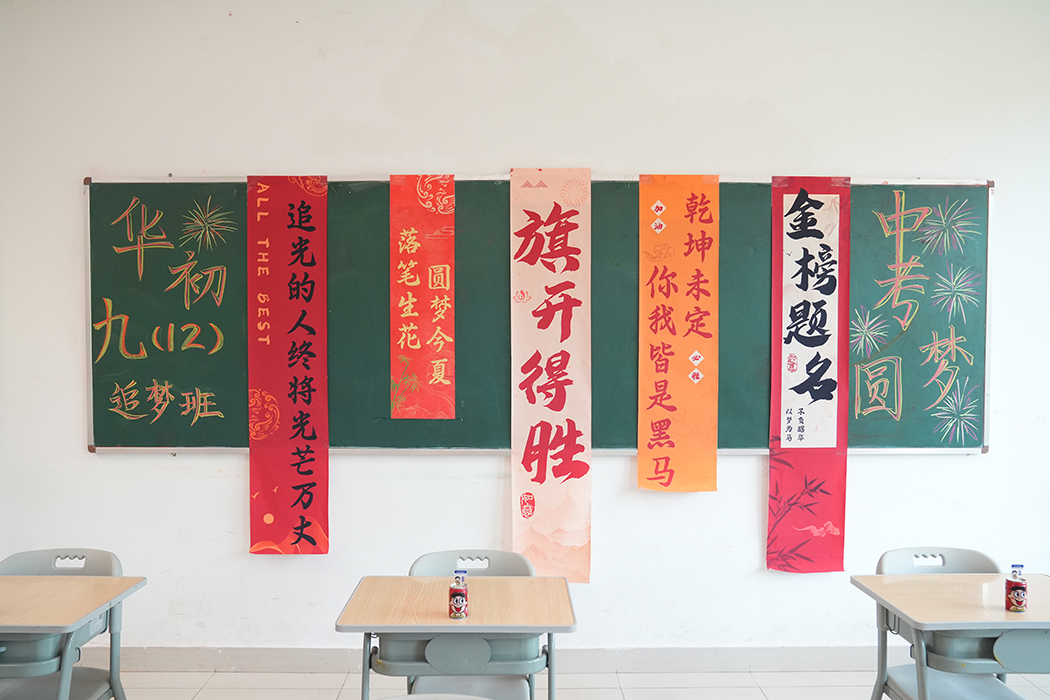 华初
九(12)
追梦班
ALL THE BEST
追光的人终将光芒万丈
圆梦今夏
落笔生花
旗开得胜
加油
乾坤未定
你我皆是黑马
必胜
金榜题名
不负韶华
以梦为马
中考
圆梦